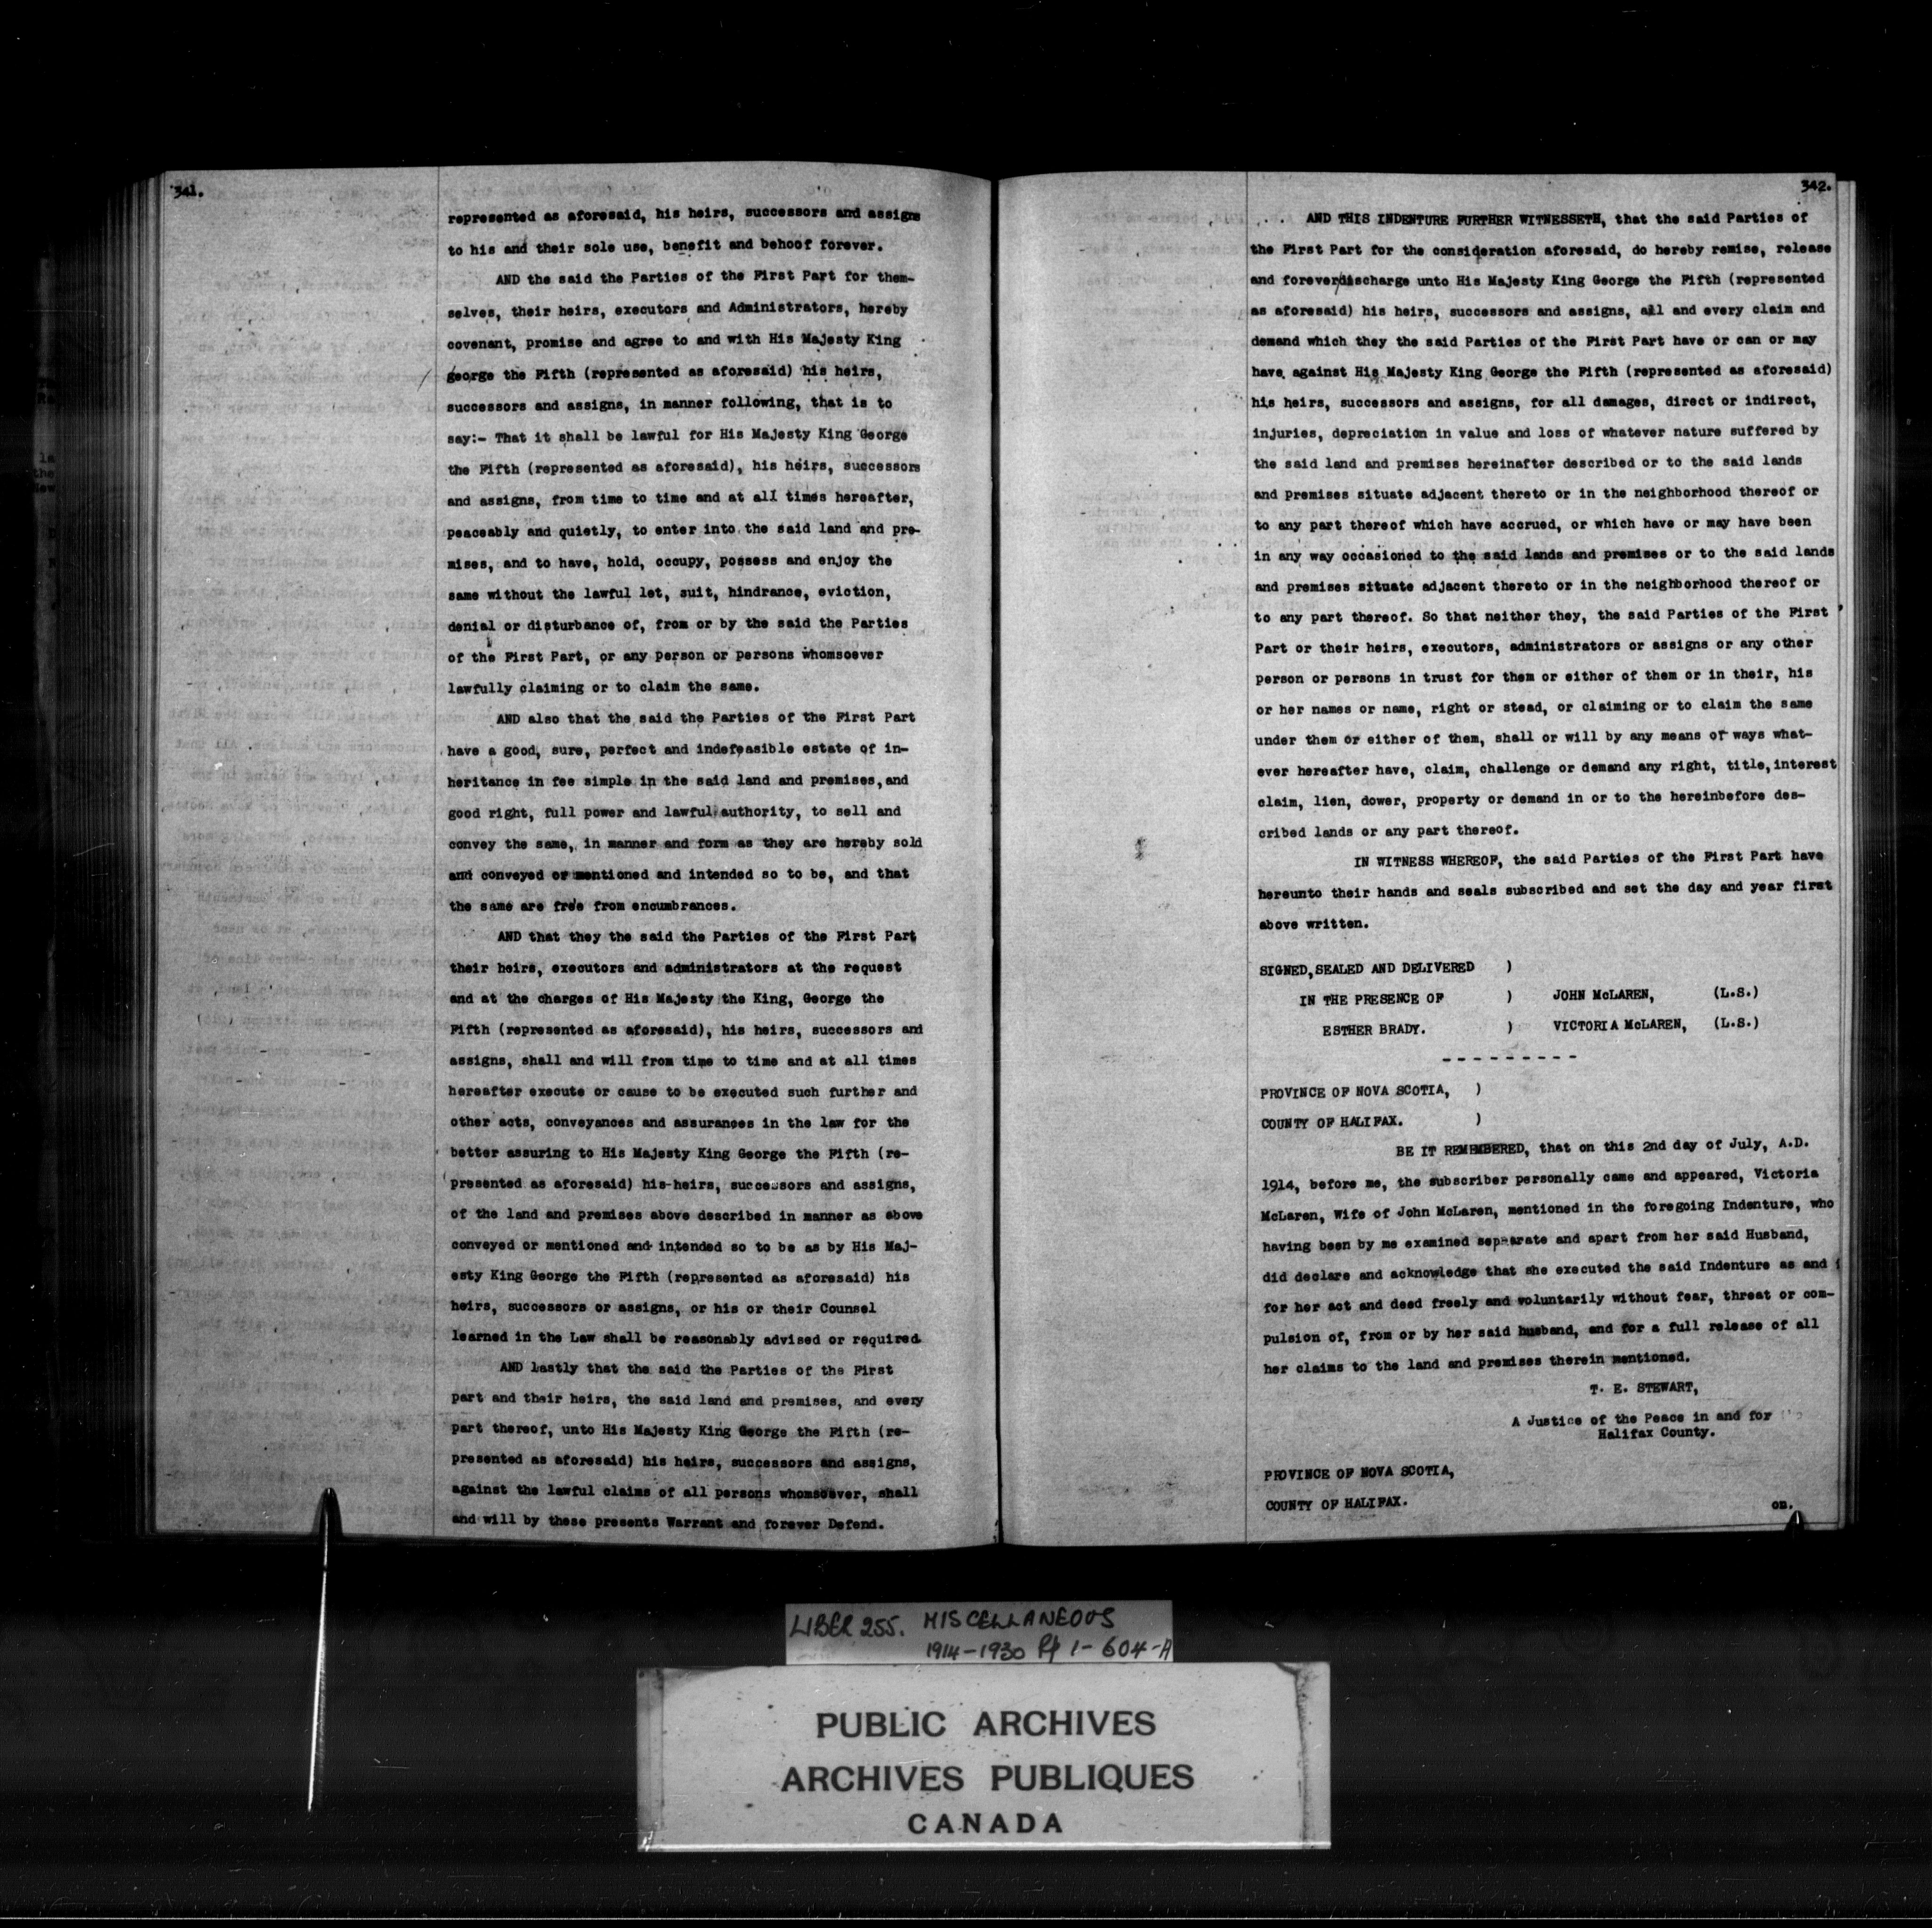 341.
represented as aforesaid, his heirs, successors and assigns
to his and their sole use, benefit and behoof forever.
AND the said the Parties of the First Part for them-
selves, their heirs, executors and Administrators, hereby
covenant, promise and agree to and with His Majesty King
george the Fifth (represented as aforesaid) his heirs,
successors and assigns, in manner following, that is to
say:- That it shall be lawful for His Majesty King George
the Fifth (represented as aforesaid), his heirs, successors
and assigns, from time to time and at all times hereafter,
peaceably and quietly, to enter into the said land and pre-
mises, and to have, hold, occupy, possess and enjoy the
same without the lawful let, suit, hindrance, eviction,
denial or disturbance of, from or by the said the Parties
of the First Part, or any person or persons whomsoever
lawfully claiming or to claim the same.
AND also that the said the Parties of the First Part
have a good, sure, perfect and indefeasible estate of in-
heritance in fee simple in the said land and premises, and
good right, full power and lawful authority, to sell and
convey the same, in manner and form as they are hereby sold
and conveyed or mentioned and intended so to be, and that
the same are free from encumbrances.
AND that they the said the Parties of the First Part
their heirs, executors and administrators at the request
and at the charges of His Majesty the King, George the
Fifth (represented as aforesaid), his heirs, successors and
assigns, shall and will from time to time and at all times
hereafter execute or cause to be executed such further and
other acts, conveyances and assurances in the law for the
better assuring to His Majesty King George the Fifth (re-
presented as aforesaid) his heirs, successors and assigns,
of the land and premises above described in manner as above
conveyed or mentioned and intended so to be as by His Maj-
esty King George the Fifth (represented as aforesaid) his
heirs, successors or assigns, or his or their Counsel
learned in the Law shall be reasonably advised or required.
AND lastly that the said the Parties of the First
part and their heirs, the said land and premises, and every
part thereof, unto His Majesty King George the Fifth (re-
presented as aforesaid) his heirs, successors and assigns,
against the lawful claims of all persons whomsoever, shall
and will by these presents Warrant and forever Defend.
342.
AND THIS INDENTURE FURTHER WITNESSETH, that the said Parties of
the First Part for the consideration aforesaid, do hereby remise, release
and forever/discharge unto His Majesty King George the Fifth (represented
as aforesaid) his heirs, successors and assigns, all and every claim and
demand which they the said Parties of the First Part have or can or may
have against His Majesty King George the Fifth (represented as aforesaid)
his heirs, successors and assigns, for all damages, direct or indirect,
injuries, depreciation in value and loss of whatever nature suffered by
the said land and premises hereinafter described or to the said lands
and premises situate adjacent thereto or in the neighborhood thereof or
to any part thereof which have accrued, or which have or may have been
in any way occasioned to the said lands and premises or to the said lands
and premises situate adjacent thereto or in the neighborhood thereof or
to any part thereof. So that neither they, the said Parties of the First
Part or their heirs, executors, administrators or assigns or any other
person or persons in trust for them or either of them or in their, his
or her names or name, right or stead, or claiming or to claim the same
under them or either of them, shall or will by any means or ways what-
ever hereafter have, claim, challenge or demand any right, title, interest
claim, lien, dower, property or demand in or to the hereinbefore des-
cribed lands or any part thereof.
IN WITNESS WHEREOF, the said Parties of the First Part have
hereunto their hands and seals subscribed and set the day and year first
above written.
SIGNED, SEALED AND DELIVERED )
IN THE PRESENCE OF ) JOHN McLAREN, (L.S.)
ESTHER BRADY. ) VICTORIA McLAREN, (L.S.)
- - - - - - - - -
PROVINCE OF NOVA SCOTIA, )
COUNTY OF HALIFAX. )
BE IT REMEMBERED, that on this 2nd day of July, A.D.
1914, before me, the subscriber personally came and appeared, Victoria
McLaren, wife of John McLaren, mentioned in the foregoing Indenture, who
having been by me examined separate and apart from her said Husband,
did declare and acknowledge that she executed the said Indenture as and
for her act and deed freely and voluntarily without fear, threat or com-
pulsion of, from or by her said husband, and for a full release of all
her claims to the land and premises therein mentioned.
T. E. STEWART,
A Justice of the Peace in and for
Halifax County.
PROVINCE OF NOVA SCOTIA,
COUNTY OF HALIFAX.
on.
LIBER 255. MISCELLANEOUS
1914-1930 Pp 1-604-A
PUBLIC ARCHIVES
ARCHIVES PUBLIQUES
CANADA